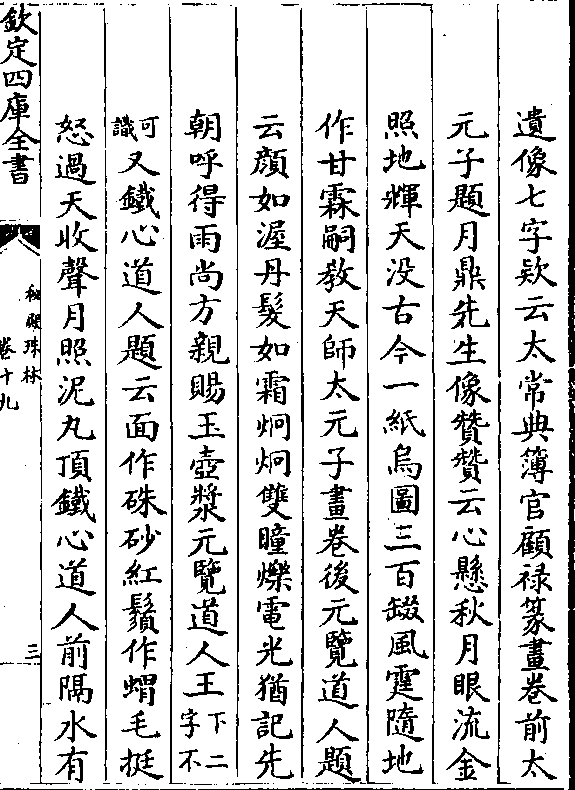 遺像七字欵云太常典簿官顧禄篆畫卷前太
元子題月鼎先生像贊贊云心懸秋月眼流金
照地輝天没古今一紙烏圖三百綴風霆隨地
作甘霖嗣教天師太元子畫卷後元覽道人題
云顔如渥丹髮如霜炯炯雙瞳爍電光猶記先
朝呼得雨尚方親賜玉壺漿元覽道人王下二字不
可識又鐵心道人題云面作硃砂紅鬚作蝟毛挺
怒過天收聲月照泥丸頂鐵心道人前隔水有
欽定四庫全書
秘殿珠林
卷十九
三